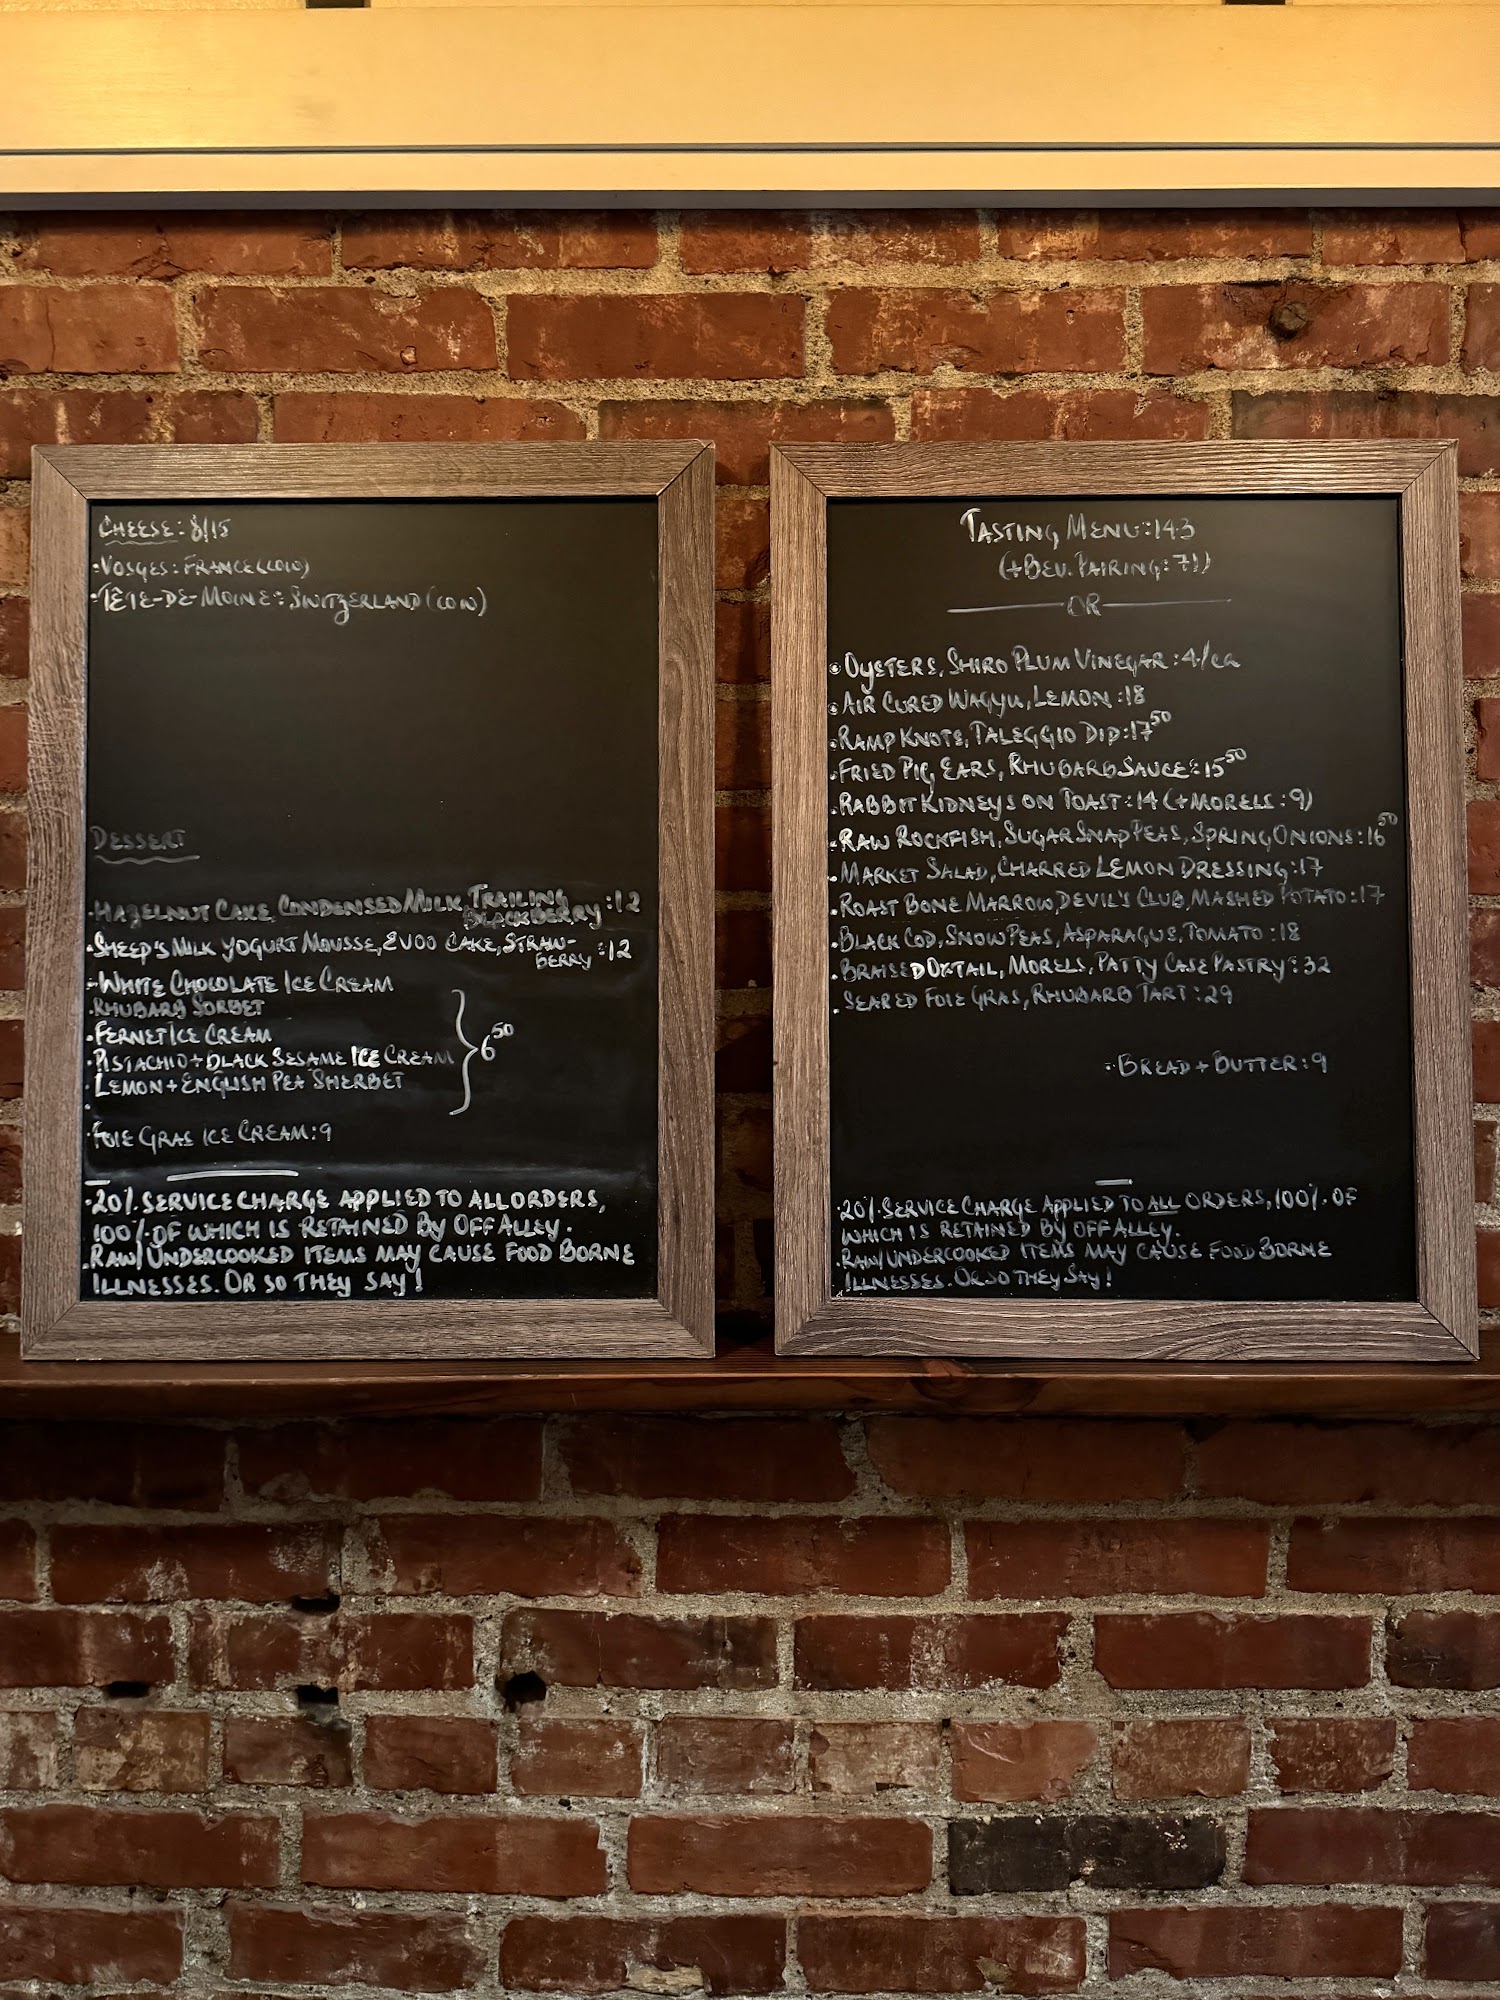 CHEESE: 8/15
·VOSGES: FRANCE (COW)
·TÊTE-DE-MOINE: SWITZERLAND (COW)
DESSERT
·HAZELNUT CAKE, CONDENSED MILK, TRAILING
BLACKBERRY: 12
·SHEEP'S MILK YOGURT MOUSSE, EVOO CAKE, STRAW-
BERRY: 12
·WHITE CHOCOLATE ICE CREAM
·RHUBARB SORBET
·FERNET ICE CREAM
·PISTACHIO + BLACK SESAME ICE CREAM } 6⁵⁰
·LEMON + ENGLISH PEA SHERBET
·FOIE GRAS ICE CREAM: 9
·20% SERVICE CHARGE APPLIED TO ALL ORDERS,
100% OF WHICH IS RETAINED BY OFF ALLEY.
·RAW/UNDERCOOKED ITEMS MAY CAUSE FOOD BORNE
ILLNESSES. OR SO THEY SAY!
TASTING MENU: 143
(+BEV. PAIRING: 71)
OR
·OYSTERS, SHIRO PLUM VINEGAR: 4/ea
·AIR CURED WAGYU, LEMON: 18
·RAMP KNOTS, TALEGGIO DIP: 17⁵⁰
·FRIED PIG EARS, RHUBARB SAUCE: 15⁵⁰
·RABBIT KIDNEYS ON TOAST: 14 (+MORELS: 9)
·RAW ROCKFISH, SUGAR SNAP PEAS, SPRING ONIONS: 16⁵⁰
·MARKET SALAD, CHARRED LEMON DRESSING: 17
·ROAST BONE MARROW, DEVIL'S CLUB, MASHED POTATO: 17
·BLACK COD, SNOW PEAS, ASPARAGUS, TOMATO: 18
·BRAISED OXTAIL, MORELS, PATTY CASE PASTRY: 32
·SEARED FOIE GRAS, RHUBARB TART: 29
·BREAD + BUTTER: 9
·20% SERVICE CHARGE APPLIED TO ALL ORDERS, 100% OF
WHICH IS RETAINED BY OFF ALLEY.
·RAW/UNDERCOOKED ITEMS MAY CAUSE FOOD BORNE
ILLNESSES. OR SO THEY SAY!